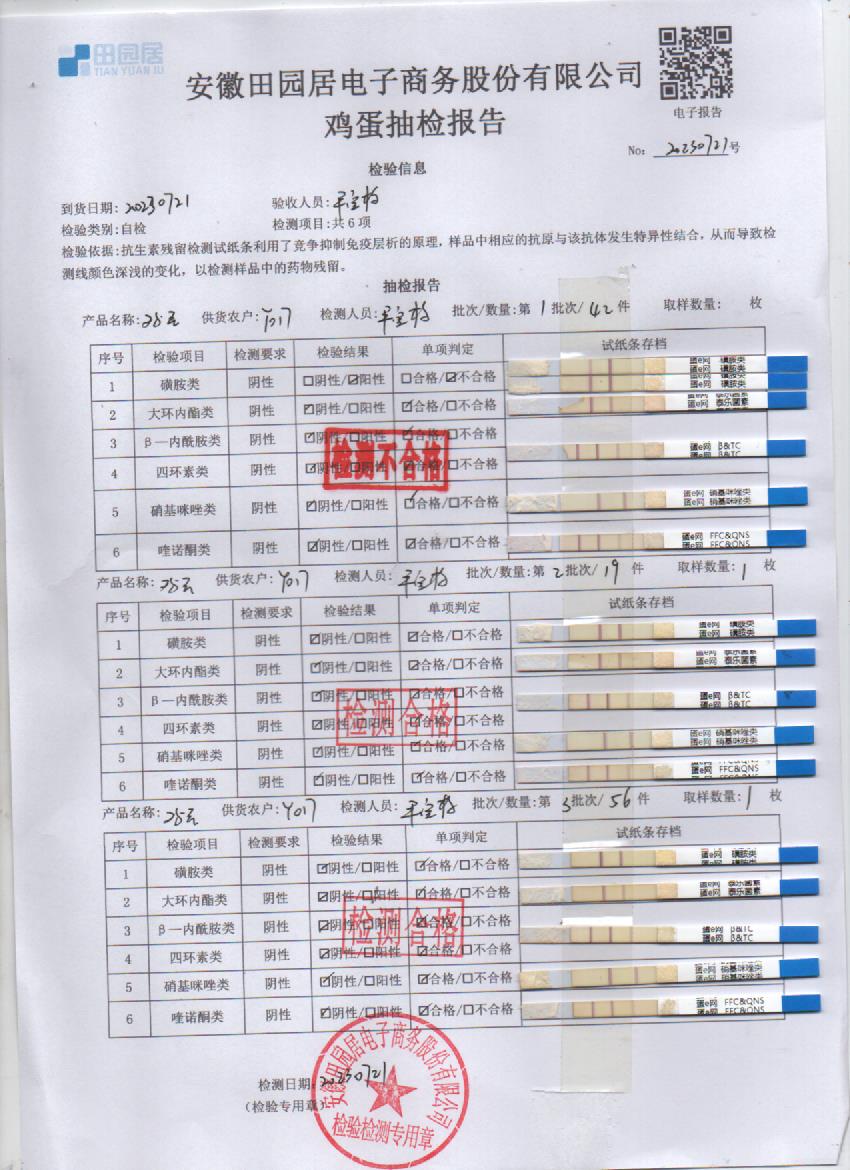 田园居
TIAN YUAN JU
安徽田园居电子商务股份有限公司
鸡蛋抽检报告
电子报告
No: 20230721号
检验信息
到货日期: 20230721 验收人员:
检验类别:自检 检测项目:共 6 项
检验依据:抗生素残留检测试纸条利用了竞争抑制免疫层析的原理，样品中相应的抗原与该抗体发生特异性结合，从而导致检
测线颜色深浅的变化，以检测样品中的药物残留。
抽检报告
产品名称: 供货农户:Y017 检测人员: 批次/数量:第 1 批次/ 42 件 取样数量: 枚
序号 检验项目 检测要求 检验结果 单项判定 试纸条存档
1 磺胺类 阴性 □阴性/☑阳性 □合格/☑不合格 蛋e网 磺胺类
蛋e网 磺胺类
蛋e网 磺胺类
2 大环内酯类 阴性 ☑阴性/□阳性 ☑合格/□不合格 蛋e网 泰乐菌素
蛋e网 泰乐菌素
3 β—内酰胺类 阴性 ☑阴性/□阳性 ☑合格/□不合格 蛋e网 β&TC
蛋e网 β&TC
4 四环素类 阴性 ☑阴性/□阳性 ☑合格/□不合格
检测不合格
5 硝基咪唑类 阴性 ☑阴性/□阳性 ☑合格/□不合格 蛋e网 硝基咪唑类
蛋e网 硝基咪唑类
6 喹诺酮类 阴性 ☑阴性/□阳性 ☑合格/□不合格 蛋e网 FFC&QNS
蛋e网 FFC&QNS
产品名称: 供货农户:Y017 检测人员: 批次/数量:第 2 批次/ 19 件 取样数量: 1 枚
序号 检验项目 检测要求 检验结果 单项判定 试纸条存档
1 磺胺类 阴性 ☑阴性/□阳性 ☑合格/□不合格 蛋e网 磺胺类
蛋e网 磺胺类
2 大环内酯类 阴性 ☑阴性/□阳性 ☑合格/□不合格 蛋e网 泰乐菌素
蛋e网 泰乐菌素
3 β—内酰胺类 阴性 ☑阴性/□阳性 ☑合格/□不合格 蛋e网 β&TC
蛋e网 β&TC
4 四环素类 阴性 ☑阴性/□阳性 ☑合格/□不合格
检测合格
5 硝基咪唑类 阴性 ☑阴性/□阳性 ☑合格/□不合格 蛋e网 硝基咪唑类
蛋e网 硝基咪唑类
6 喹诺酮类 阴性 ☑阴性/□阳性 ☑合格/□不合格 蛋e网 FFC&QNS
蛋e网 FFC&QNS
产品名称: 供货农户:Y017 检测人员: 批次/数量:第 3 批次/ 56 件 取样数量: 1 枚
序号 检验项目 检测要求 检验结果 单项判定 试纸条存档
1 磺胺类 阴性 ☑阴性/□阳性 ☑合格/□不合格 蛋e网 磺胺类
蛋e网 磺胺类
2 大环内酯类 阴性 ☑阴性/□阳性 ☑合格/□不合格 蛋e网 泰乐菌素
蛋e网 泰乐菌素
3 β—内酰胺类 阴性 ☑阴性/□阳性 ☑合格/□不合格 蛋e网 β&TC
蛋e网 β&TC
4 四环素类 阴性 ☑阴性/□阳性 ☑合格/□不合格
检测合格
5 硝基咪唑类 阴性 ☑阴性/□阳性 ☑合格/□不合格 蛋e网 硝基咪唑类
蛋e网 硝基咪唑类
6 喹诺酮类 阴性 ☑阴性/□阳性 ☑合格/□不合格 蛋e网 FFC&QNS
蛋e网 FFC&QNS
检测日期: 20230721
(检验专用章)
安徽田园居电子商务股份有限公司
检验检测专用章